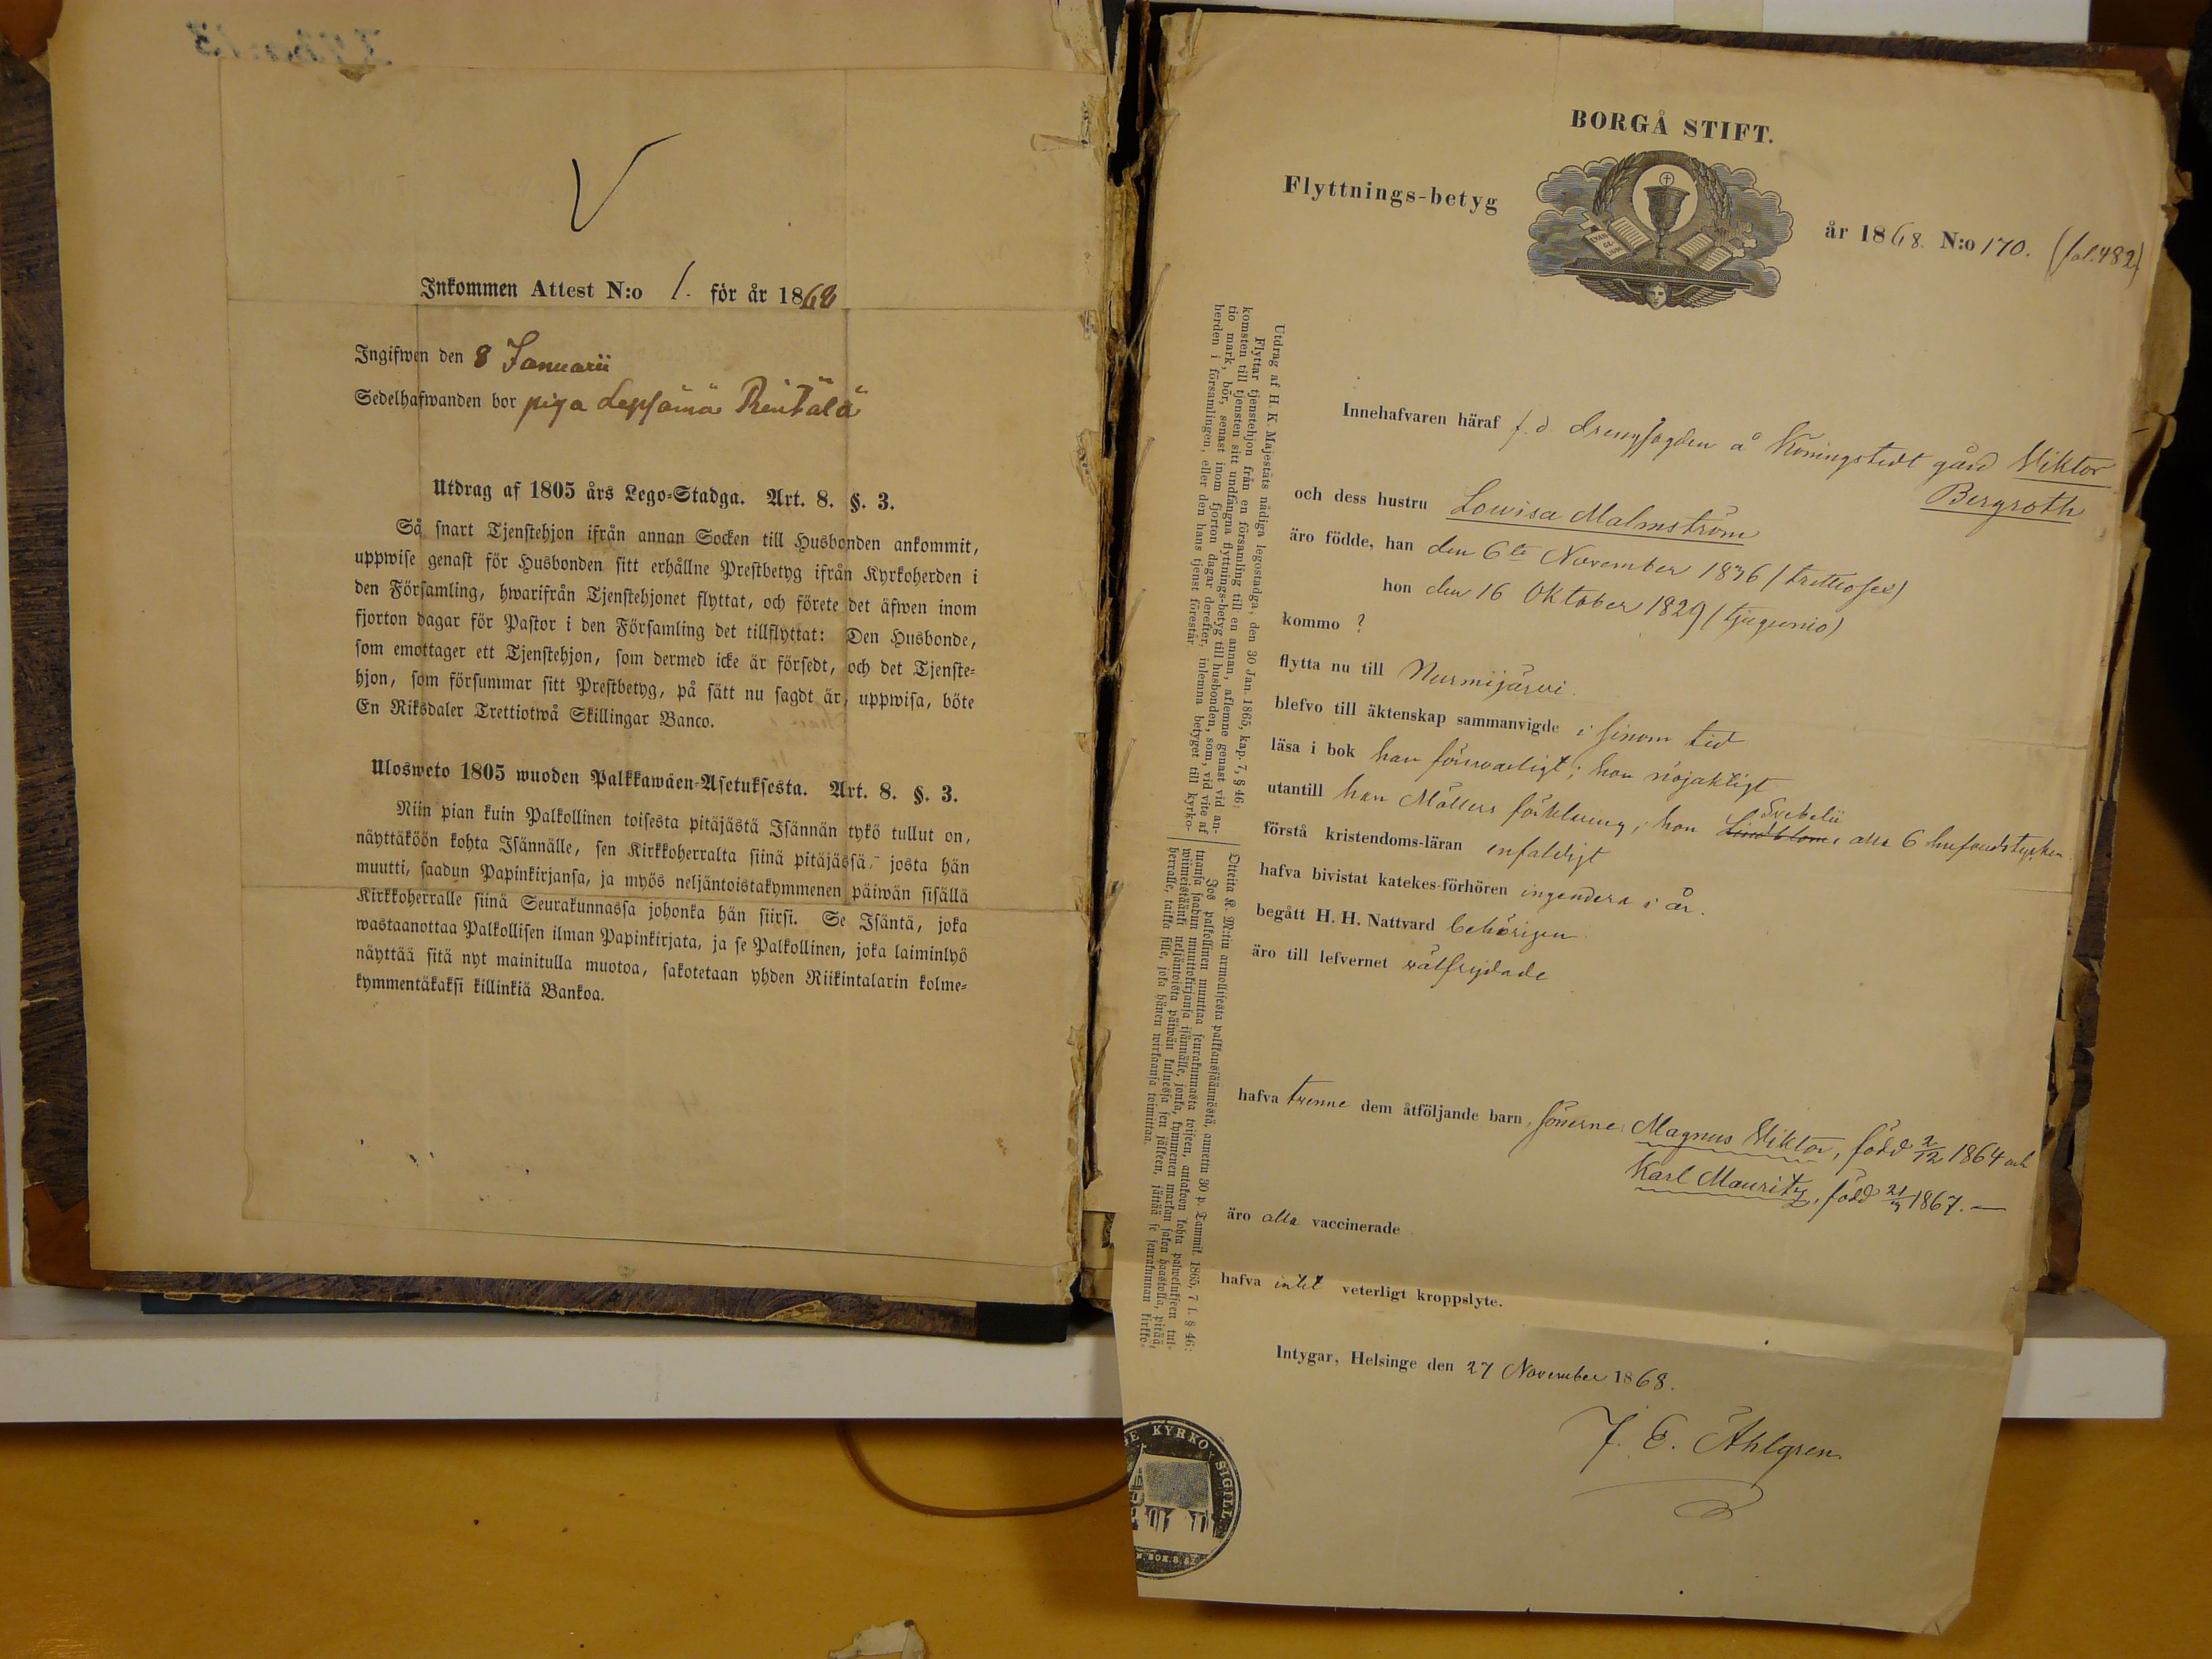 V
Inkommen Attest N:o 1. för år 1868
Ingifwen den 8 Januarii
Sedelhafwanden bor piga Lepsämä Rentälä
Utdrag af 1805 års Lego-Stadga. Art. 8. §. 3.
Så snart Tjenstehjon ifrån annan Socken till Husbonden ankommit,
uppwise genast för Husbonden sitt erhållne Prestbetyg ifrån Kyrkoherden i
den Församling, hwarifrån Tjenstehjonet flyttat, och förete det äfwen inom
fjorton dagar för Pastor i den Församling det tillflyttat: Den Husbonde,
som emottager ett Tjenstehjon, som dermed icke är försedt, och det Tjenste-
hjon, som försummar sitt Prestbetyg, på sätt nu sagdt är, uppwisa, böte
En Riksdaler Trettiotwå Skillingar Banco.
Ulosweto 1805 wuoden Palkkawäen-Asetuksesta. Art. 8. §. 3.
Niin pian kuin Palkollinen toisesta pitäjästä Isännän tykö tullut on,
näyttäköön kohta Isännälle, sen Kirkkoherralta siinä pitäjässä, josta hän
muutti, saadun Papinkirjansa, ja myös neljäntoistakymmenen päiwän sisällä
Kirkkoherralle siinä Seurakunnassa johonka hän siirsi. Se Isäntä, joka
wastaanottaa Palkollisen ilman Papinkirjata, ja se Palkollinen, joka laiminlyö
näyttää sitä nyt mainitulla muotoa, sakotetaan yhden Riikintalarin kolme-
kymmentäkaksi killinkiä Bankoa.
BORGÅ STIFT.
Flyttnings-betyg
EVAN-
GE-
LIUM
år 1868. N:o 170. (fol. 482)
Innehafvaren häraf f. d. drengfogden å Köningstedt gård Viktor
Bergroth
och dess hustru Lowisa Malmström
äro födde, han den 6te November 1836 (trettiosex)
hon den 16 Oktober 1829 (tjugunio)
kommo ?
flytta nu till Nurmijärvi.
blefvo till äktenskap sammanvigde i sinom tid
läsa i bok han försvarligt; hon nöjaktigt
Svebelii
utantill han Möllers förklaring; hon Lindbloms alla 6 hufvudstycken
förstå kristendoms-läran enfaldigt
hafva bivistat katekes-förhören ingendera i år.
begått H. H. Nattvard behörigen
äro till lefvernet välfrejdade
hafva trenne dem åtföljande barn, sönerne: Magnus Viktor, född 2/12 1864 och
Karl Mauritz, född 21/9 1867. —
äro alla vaccinerade
hafva intet veterligt kroppslyte.
Intygar, Helsinge den 27 November 1868.
J. E. Åhlgren
KYRKO SIGILL
Utdrag af H. K. Majestäts nådiga legostadga, den 30 Jan. 1865, kap. 7, § 46:
Flyttar tjenstehjon från en församling till en annan, aflemne genast vid an-
komsten till tjensten sitt undfångna flyttnings-betyg till husbonden, som, vid vite af
tio mark, bör, senast inom fjorton dagar derefter, inlemna betyget till kyrko-
herden i församlingen, eller den hans tjenst förestår.
Otteita K. M:tin armollisesta palkkaussäännöstä, annettu 30 p. Tammik. 1865, 7 l. § 46:
Jos palkollinen muuttaa seurakunnasta toiseen, antakoon kohta palwelukseen tul-
tuansa saadun muuttokirjansa isännälle, jonka, kymmenen markan sakon haastolla, pitää,
wiimeistäänki neljäntoista päiwän kuluessa sen jälkeen, jättää se seurakunnan kirkko-
herralle, taikka sille, joka hänen wirkaansa toimittaa.